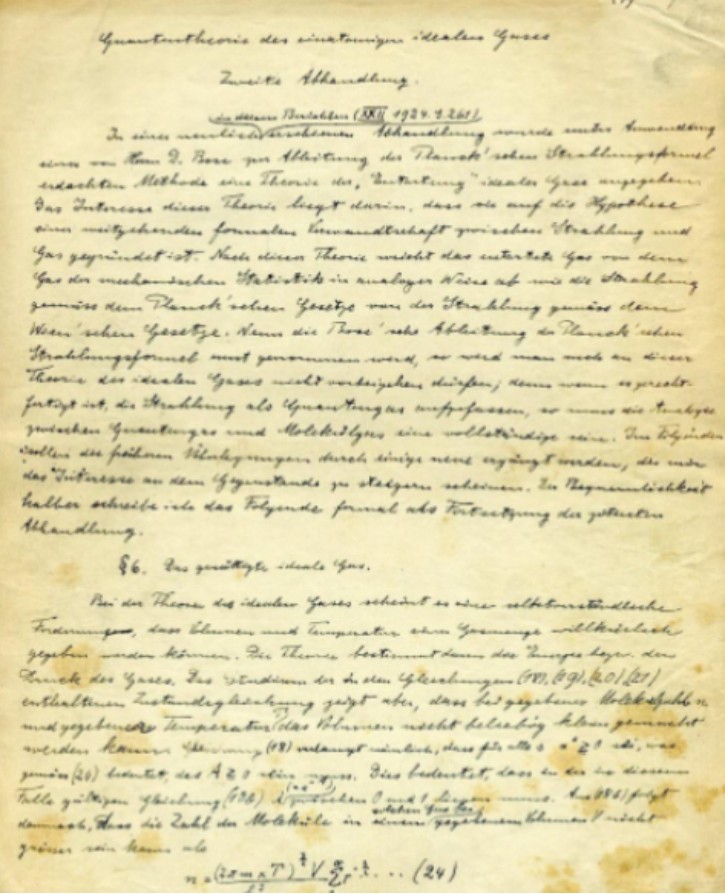 Quantentheorie des einatomigen idealen Gases
Zweite Abhandlung.
(XXII 1924. S. 261)
In einer neulich erschienenen Abhandlung wurde unter Anwendung
einer von Herrn D. Bose zur Ableitung der Planck'schen Strahlungsformel
erdachten Methode eine Theorie der „Entartung" idealer Gase angegeben.
Das Interesse dieser Theorie liegt darin, dass sie auf die Hypothese
einer weitgehenden formalen Verwandtschaft zwischen Strahlung und
Gas gegründet ist. Nach dieser Theorie weicht das entartete Gas von dem
Gas der mechanischen Statistik in analoger Weise ab wie die Strahlung
gemäss dem Planck'schen Gesetze von der Strahlung gemäss dem
Wien'schen Gesetze. Wenn die Bose'sche Ableitung der Planck'schen
Strahlungsformel ernst genommen wird, so wird man auch an dieser
Theorie des idealen Gases nicht vorbeigehen dürfen; denn wenn es gerecht-
fertigt ist, die Strahlung als Quantengas aufzufassen, so muss die Analogie
zwischen Quantengas und Molekülgas eine vollständige sein. Im Folgenden
sollen die früheren Überlegungen durch einige neue ergänzt werden, die mir
das Interesse an dem Gegenstande zu steigern scheinen. Der Bequemlichkeit
halber schreibe ich das Folgende formal als Fortsetzung der zitierten
Abhandlung.
§6. Das gesättigte ideale Gas.
Bei der Theorie des idealen Gases scheint es eine selbstverständliche
Forderung, dass Volumen und Temperatur einer Gasmenge willkürlich
gegeben werden können. Die Theorie bestimmt dann die Energie bezw. den
Druck des Gases. Das Studium der in den Gleichungen (18), (19), (20), (21)
enthaltenen Zustandsgleichung zeigt aber, dass bei gegebener Molekülzahl n
und gegebener Temperatur das Volumen nicht beliebig klein gemacht
werden kann. (18) verlangt nämlich, dass für alle s αˢ ≥ 0 sei, was
gemäss (20) bedeutet, dass A ≥ 0 sein muss. Dies bedeutet, dass in der in diesem
Falle gültigen Gleichung (18b) λ zwischen 0 und 1 liegen muss. Aus (18b) folgt
demnach, dass die Zahl der Moleküle in einem gegebenem Volumen V nicht
grösser sein kann als
(24)